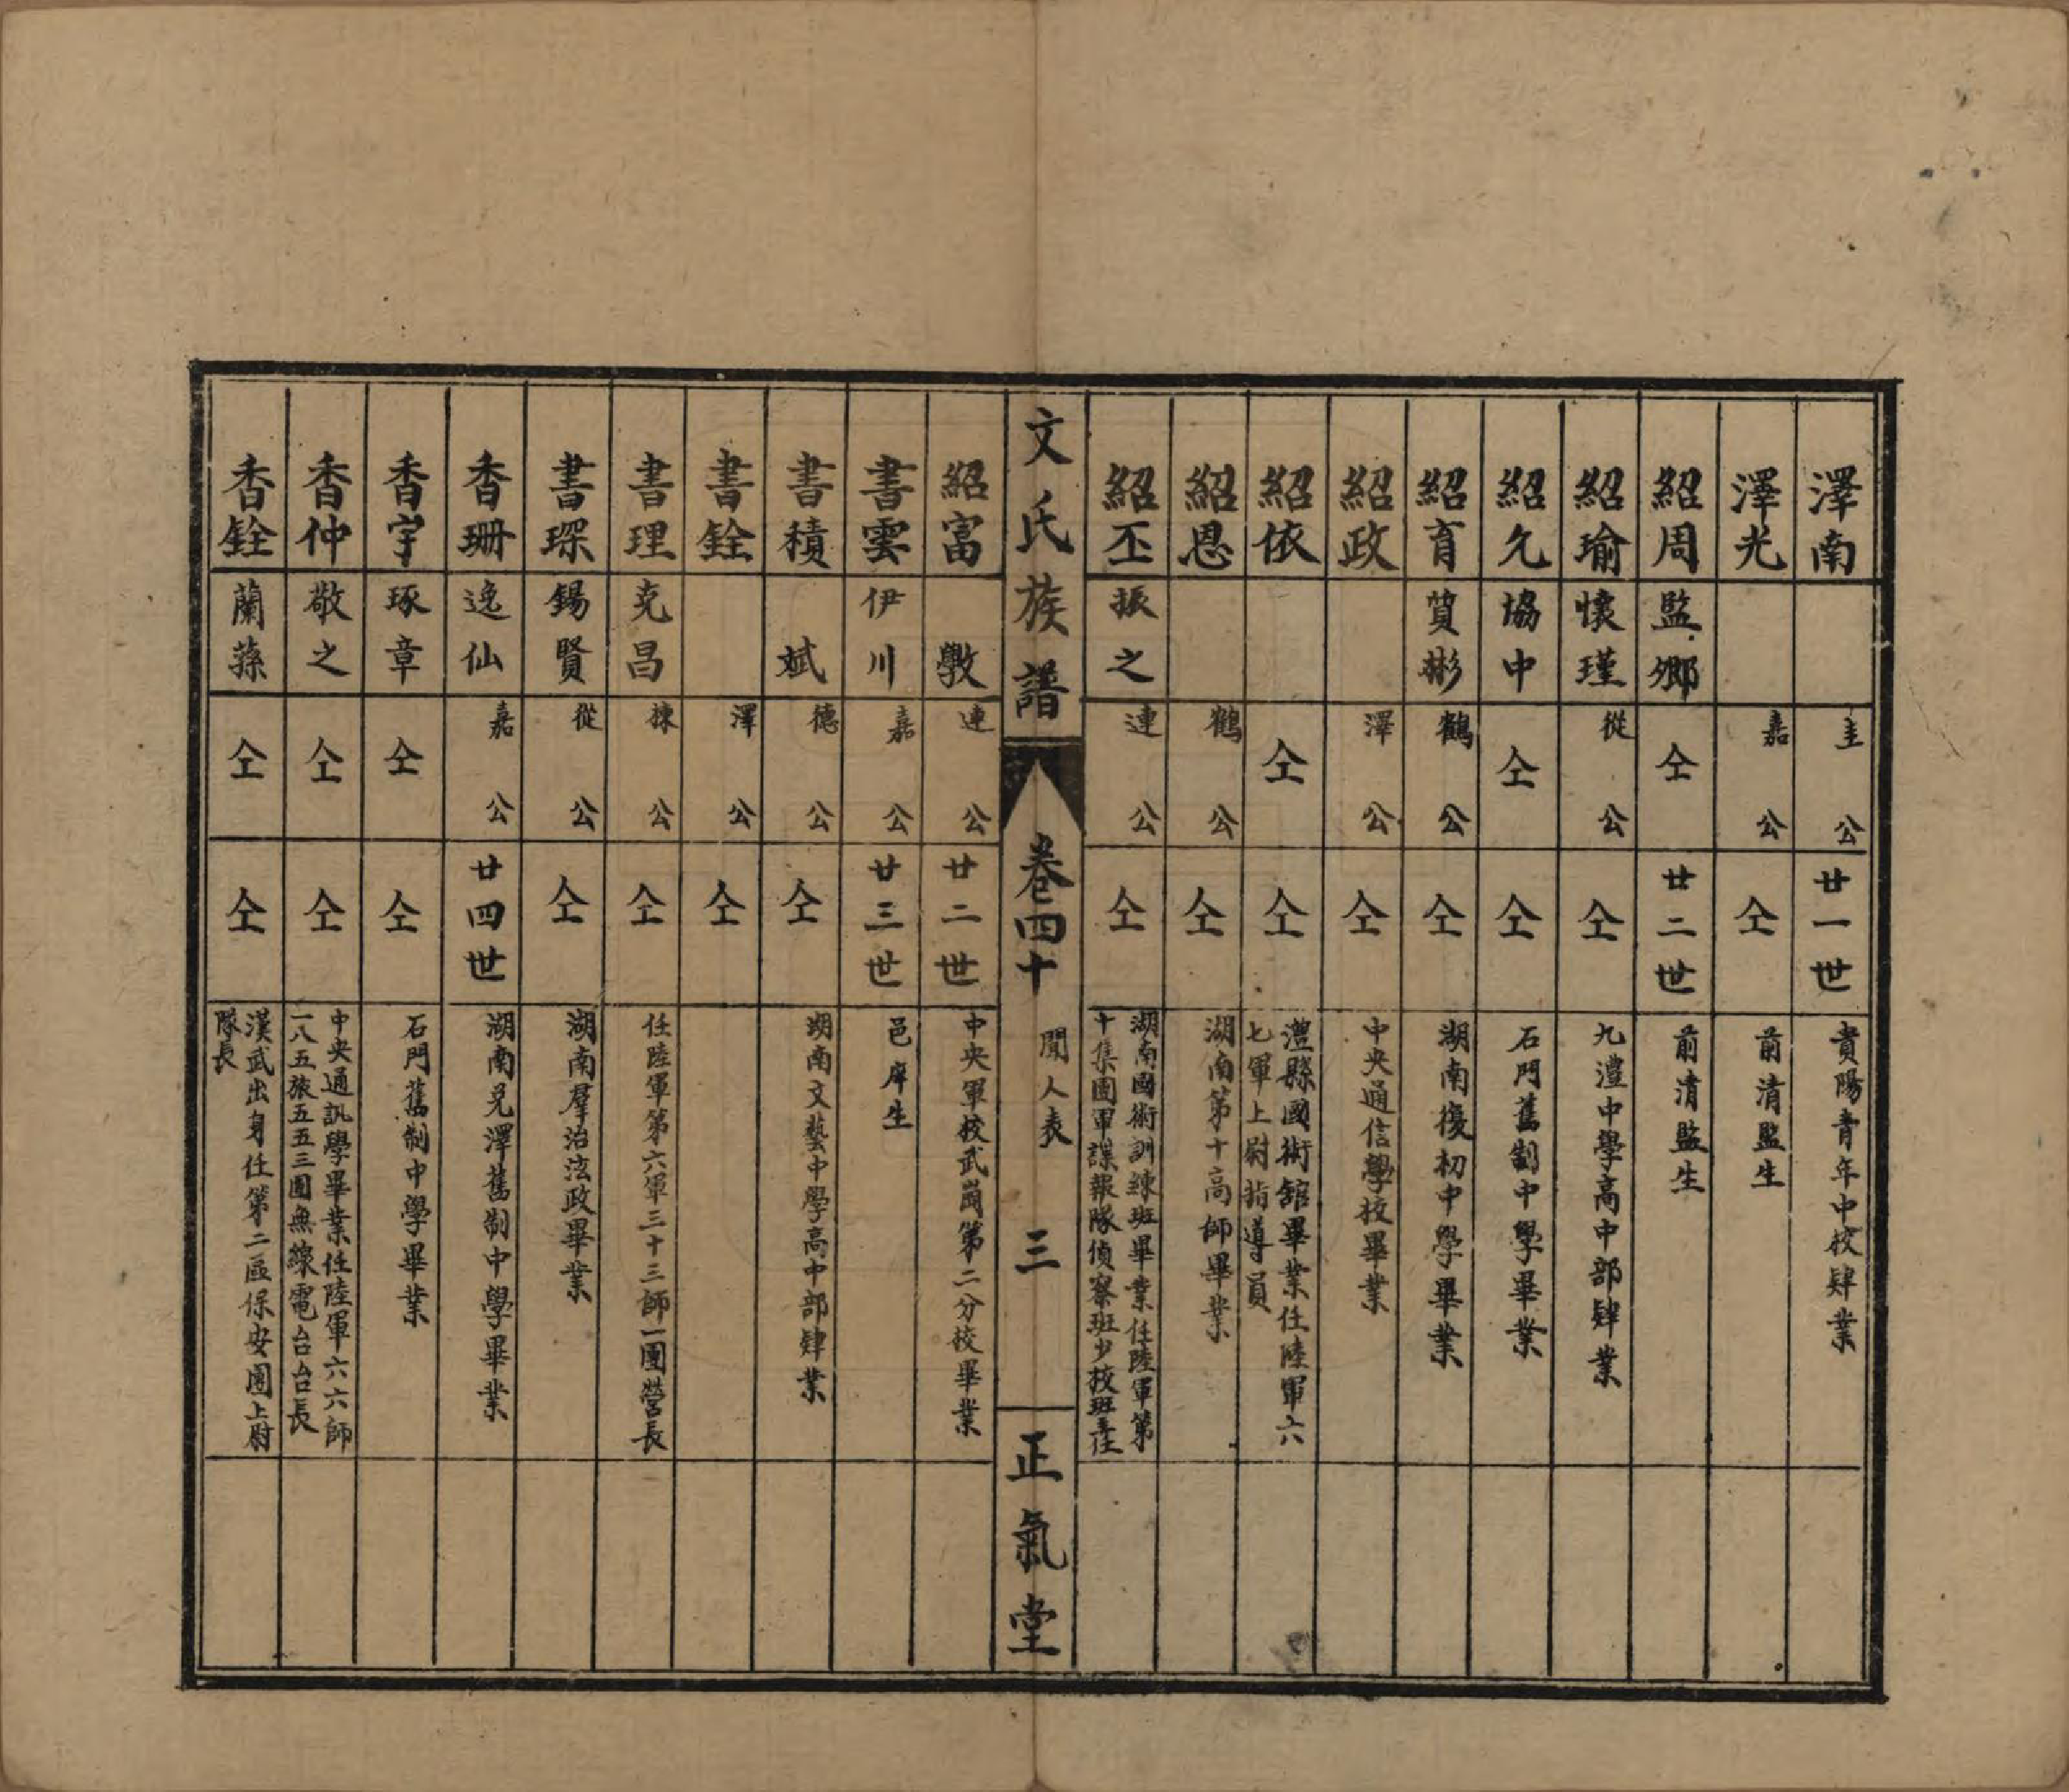 澤南 圭公 廿一世 貴陽青年中校肄業
澤光 嘉公 仝 前清監生
紹周 監卿 仝 廿二世 前清監生
紹瑜 懷瑾 從公 仝 九澧中學高中部肄業
紹久 協中 仝 仝 石門舊制中學畢業
紹育 質彬 鶴公 仝 湖南復初中學畢業
紹政 澤公 仝 中央通信學校畢業
紹依 仝 仝 澧縣國術館畢業任陸軍六
七軍上尉指導員
紹恩 鶴公 仝 湖南第十高師畢業
紹丕 振之 連公 仝 湖南國術訓練班畢業任陸軍第
十集團軍諜報隊偵察班少校班主任
文氏族譜 卷四十 聞人表 三 正氣堂
紹富 斆 連公 廿二世 中央軍校武崗第二分校畢業
書雲 伊川 嘉公 廿三世 邑庠生
書積 斌 德公 仝 湖南文藝中學高中部肄業
書銓 澤公 仝
書理 克昌 棟公 仝 任陸軍第六軍三十三師一團營長
書琛 錫賢 從公 仝 湖南羣治法政畢業
香珊 逸仙 嘉公 廿四世 湖南兑澤舊制中學畢業
香宇 琢章 仝 仝 石門舊制中學畢業
香仲 敬之 仝 仝 中央通訊學畢業任陸軍六六師
一八五旅五五三團無線電台台長
香銓 蘭蓀 仝 仝 漢武出身任第二區保安團上尉
隊長